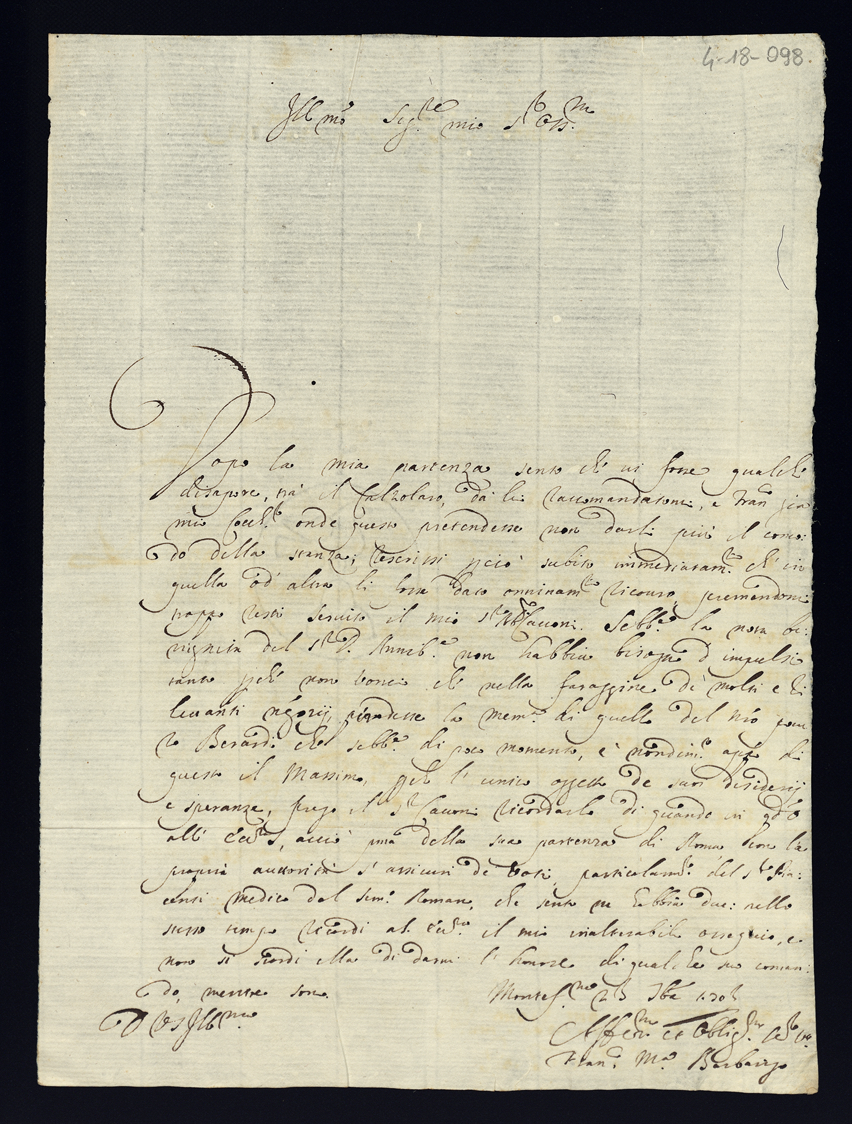 4-18-098.
Ill.mo Sig.re mio S.r Oss.mo
Dopo la mia partenza sento che vi fosse qualche
disapore, trà il Calzolaro, da lei raccomandatomi, e Fran.
mio onde questo pretendesse non darli più il como:
do della stanza, rescrissi perciò subito immediatam.te che in
quella od' altra li fosse dato onninam.te ricouro, premendomi
troppo resti seruito il mio S.r Cauoni. Sebb.e la nota be:
nignità del S.r D. Annib.e non habbia bisogno d'impulsi
tanto perche non vorrei che nella faraggine de' molti e ri
leuanti negozij, perdesse la mem.a di quello del mio poue
ro Berardi che sebb.e di poco momento, è nondim.o app.o di
questo il Massimo, per l'unico oggetto de suoi desiderij
e speranze, prego il S.r Cauoni ricordarlo di quando in q.do
all' acciò p.ma della sua partenza di Roma con la
propria auttorità s'assicuri de Voti, particolarm.te del S.r
medico del Sem.o Romano, che sento ne habbia due: nello
stesso tempo ricordi al il mio inalterabile ossequio, e
non si scordi ella di darmi l'honore di qualche suo coman:
do, mentre sono. 
D V S Ill.ma
Aff.mo et Oblig.mo
Fran.o M.a Barbarigo